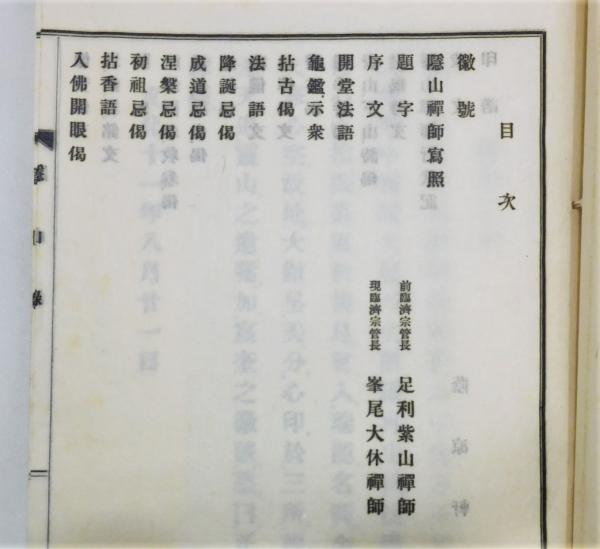 目次
徽號
隱山禪師寫照
題字 前臨濟宗管長 足利紫山禪師
序文 現臨濟宗管長 峯尾大休禪師
開堂法語
龜鑑示衆
拈古偈
法語
降誕忌偈
成道忌偈
涅槃忌偈
初祖忌偈
拈香語
入佛開眼偈